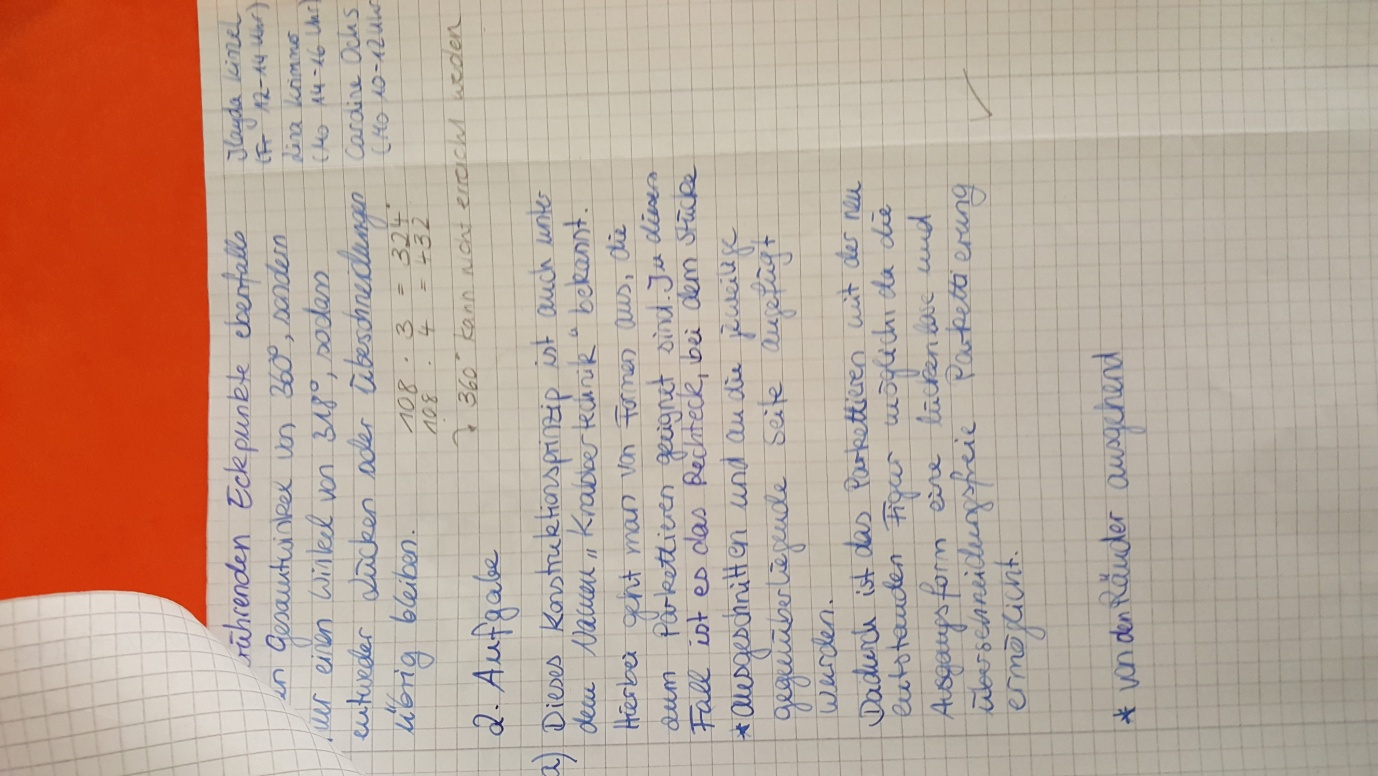 Ilayda Kinzel
(Fr 12-14 Uhr)
Lina Krämer
(Mo 14-16 Uhr)
Caroline Ochs
(Mo 10-12 Uhr
rührenden Eckpunkte ebenfalls
Gesamtwinkel von 360°, sondern
nur einen Winkel von 318°, sodass
entweder Lücken oder Überschneidungen
übrig bleiben.
108 · 3 = 324°
108 · 4 = 432
↳ 360° kann nicht erreicht werden
2. Aufgabe
a) Dieses Konstruktionsprinzip ist auch unter
dem Namen „Knabbertechnik“ bekannt.
Hierbei geht man von Formen aus, die
zum Parkettieren geeignet sind. In diesem
Fall ist es das Rechteck, bei dem Stücke
* ausgeschnitten und an die jeweilige
gegenüberliegende Seite angefügt
wurden.
Dadurch ist das Parkettieren mit der neu
entstanden Figur möglich, da die
Ausgangsform eine lückenlose und
überschneidungsfreie Parkettierung
ermöglicht.
* von den Ränder ausgehend